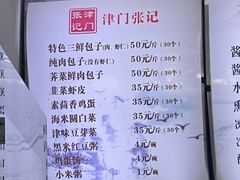 津门张记
津门张记
特色三鲜包子(肉.虾仁) 50元/斤(30个)
纯肉包子(没有虾仁) 50元/斤(30个)
荠菜鲜肉包子 50元/斤(30个)
韭菜虾皮 35元/斤(30个)
素茴香鸡蛋 35元/斤(30个)
海米圆白菜 35元/斤(30个)
津味豆芽菜 35元/斤(30个)
黑米红豆粥 4元/碗
鸡蛋汤 4元/碗
小米粥 元/碗
酱
酱